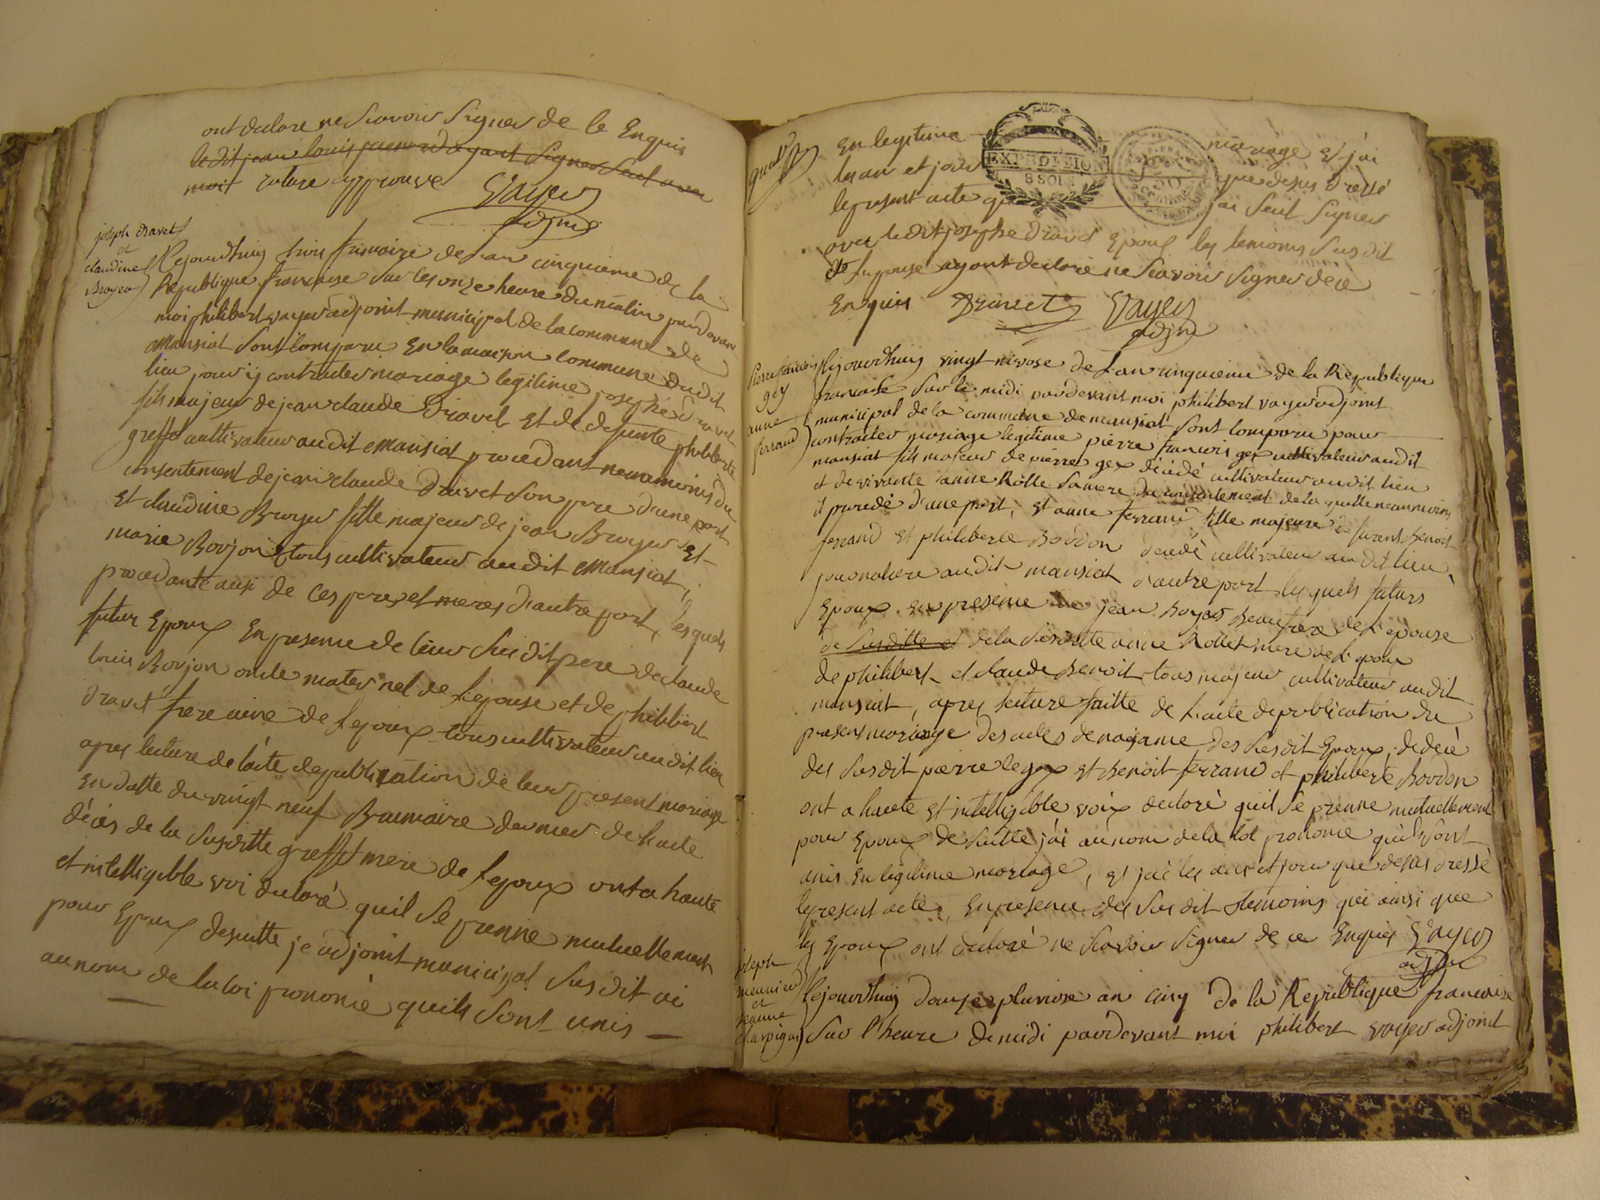 ont declare ne Scavoir Signer de ce Enquis
ledit jean louis ayant Signer Seul avec
moit rature approuve Vayer
adjoint
joseph Dravet
et
claudine
Broyer
Rejourdhuy trois frimaire de l'an cinquieme de la
Republique francaise Sur les onze heure du matin pardevant
moi philibert vayer adjoint municipal de la commune de
Mansiat Sont comparu En la maison commune dudit
lieu pour y contracter mariage legitime josephe Dravet
fils majeur de jean claude Dravet Et de defunte philiberte
greffet cultivateur audit Mansiat procedant neanmoins du
consentement de jean claude Dravet Son pere d'une part
Et claudine Broyer fille majeur de jean Broyer Et
marie Boujon tous cultivateur audit Mansiat,
procedante aussi de Ces pere et meres d'autre part, lesquels
futur Epoux En presence de leur Susdit pere de claude
louis Boujon oncle maternel de l'epouse et de philibert
Dravet frere ainé de l'epoux tous cultivateur audit lieu
apres lecture de l'acte de publication de leur present mariage
En datte du vingt neuf Brumaire dernier de l'acte
décès de la Susditte greffet mere de l'epoux ont a haute
et intelligible voi declaré quil Se prenne mutuellement
pour Epoux desuitte je adjoint municipal Susdit ai
au nom de la loi prononcé quils Sont unis
En legitime mariage et j'ai
les an et jour que desus Dressé
le present acte que j'ai Seul Signer
avec ledit josephe Dravet Epoux les temoins Susdit
et l'epouse ayant declaré ne Scavoir Signer de ce
Enquis Dravet Vayer
adjoint
EXPEDITION
8 SOLS
Pierre francois
gex
anne
ferrand
Rejourdhuy vingt nivose de l'an cinquieme de la Republique
francaise Sur le midi pardevant moi philibert vayer adjoint
municipal de la commune de mansiat Sont comparu pour
contracter mariage legitime pierre francois gex cultivateur audit
mansiat fils majeur de pierre gex décédé cultivateur audit lieu
et de vivante anne Rollet Sa mere du consentement de laquelle neanmoins
il procede d'une part, et anne ferrand fille majeure de benoit
ferrand et philiberte Bordon décédé cultivateur audit lieu
journaliere audit mansiat d'autre part lesquels futurs
Epoux En presence de jean Boyer Beaufrere de l'epouse
de Susditte et de la Susditte anne Rollet mere de l'epoux
de philibert et claude Benoit tous majeur cultivateur audit
mansiat, apres lecture faitte de l'acte de publication du
present mariage des actes de naissance des Susdit Epoux, de décé
des Susdit pierre gex et Benoit ferrand et philiberte Bordon
ont a haute et intelligible voix declaré quil Se prenne mutuellement
pour Epoux de Suitte j'ai au nom de la loi prononcé quils Sont
unis En legitime mariage, et j'ai les an et jour que desus dressé
le present acte, En presence des Susdit temoins qui ainsi que
les Epoux ont declaré ne Scavoir Signer de ce Enquis Vayer
adjoint
joseph
meunier
et
jeanne
Rejourdhuy douze pluviose an cinq de la Republique francaise
Sur l'heure de midi pardevant moi philibert vayer adjoint